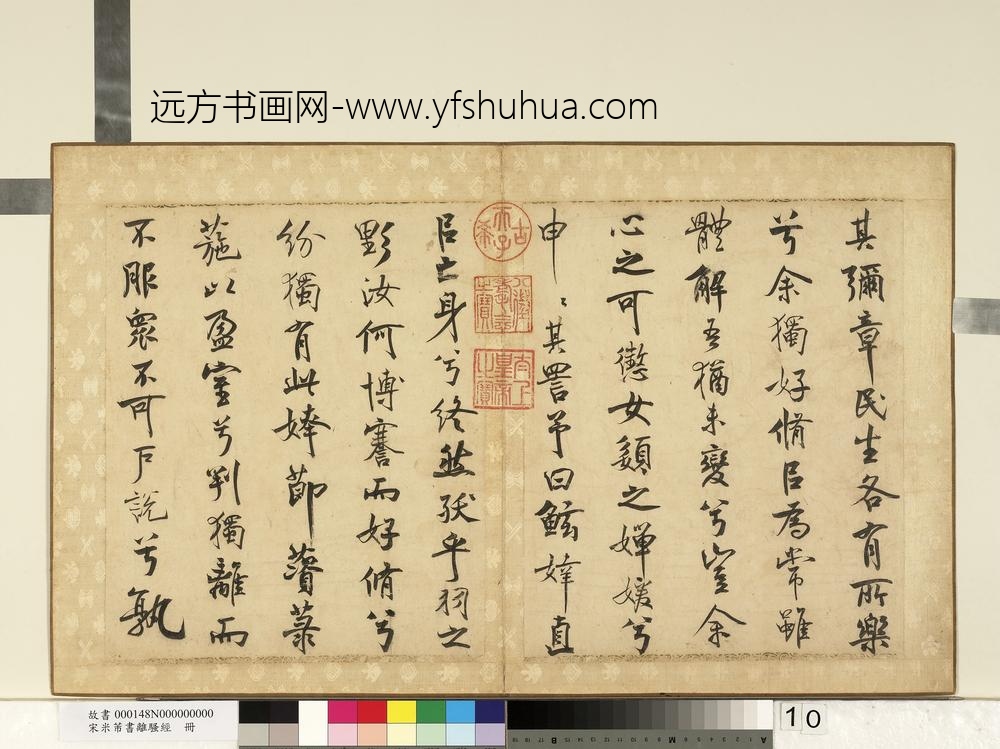 远方书画网-www.yfshuhua.com
其彌章民生各有所樂
兮余獨好脩㠯為常雖
體解吾猶未變兮豈余
心之可懲女嬃之嬋媛兮
申〻其詈予曰鯀婞直
㠯亡身兮終然殀乎羽之
野汝何博謇而好脩兮
紛獨有此姱節薋菉
葹以盈室兮判獨離而
不服衆不可戶說兮孰
古希天子
八徵耄念之寶
太上皇帝之寶
故書 000148N000000000
宋米芾書離騷經 冊
10
B
M
A